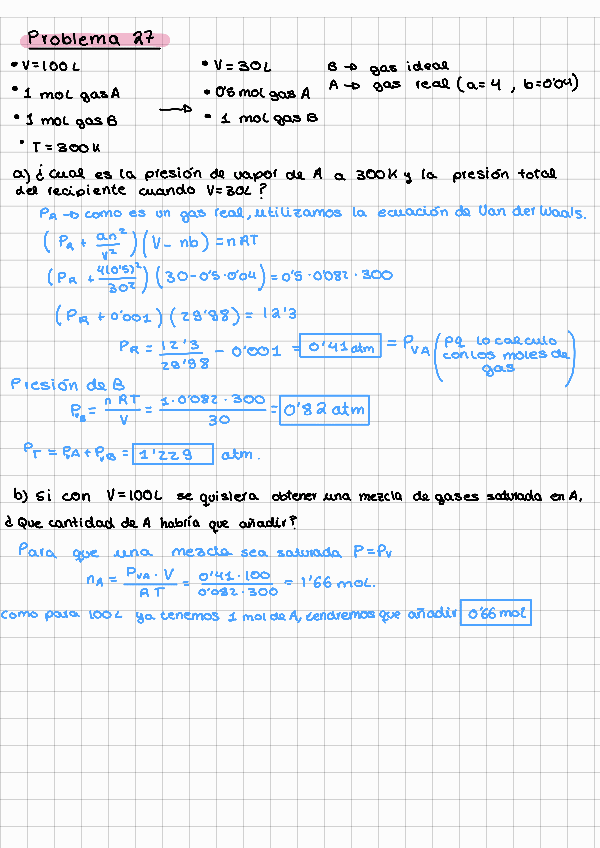 Problema 27
• V=100L • V=30L B → gas ideal
• 1 mol gas A → • 0'5 mol gas A A → gas real (a=4, b=0'04)
• 1 mol gas B • 1 mol gas B
• T=300K
a) ¿Cual es la presión de vapor de A a 300K y la presión total
del recipiente cuando V=30L?
PA → como es un gas real, utilizamos la ecuación de Van der Waals.
(PA + an²/V²)(V - nb) = nRT
(PA + 4(0'5)²/30²)(30-0'5·0'04) = 0'5·0'082·300
(PA + 0'001)(29'98) = 12'3
PA = 12'3/29'98 - 0'001 = 0'41 atm = PVA (pq lo calculo con los moles de gas)
Presión de B
PB = nRT/V = 1·0'082·300/30 = 0'82 atm
PT = PA + PB = 1'229 atm.
b) Si con V=100L se quisiera obtener una mezcla de gases saturada en A,
¿Que cantidad de A habría que añadir?
Para que una mezcla sea saturada P=Pv
nA = PVA·V/RT = 0'41·100/0'082·300 = 1'66 mol.
como para 100L ya tenemos 1 mol de A, tendremos que añadir 0'66 mol